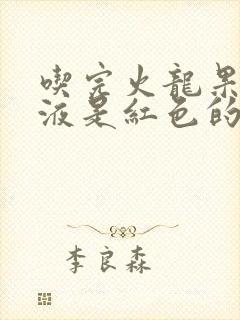 喫完火龍果
液是紅色的
李良森